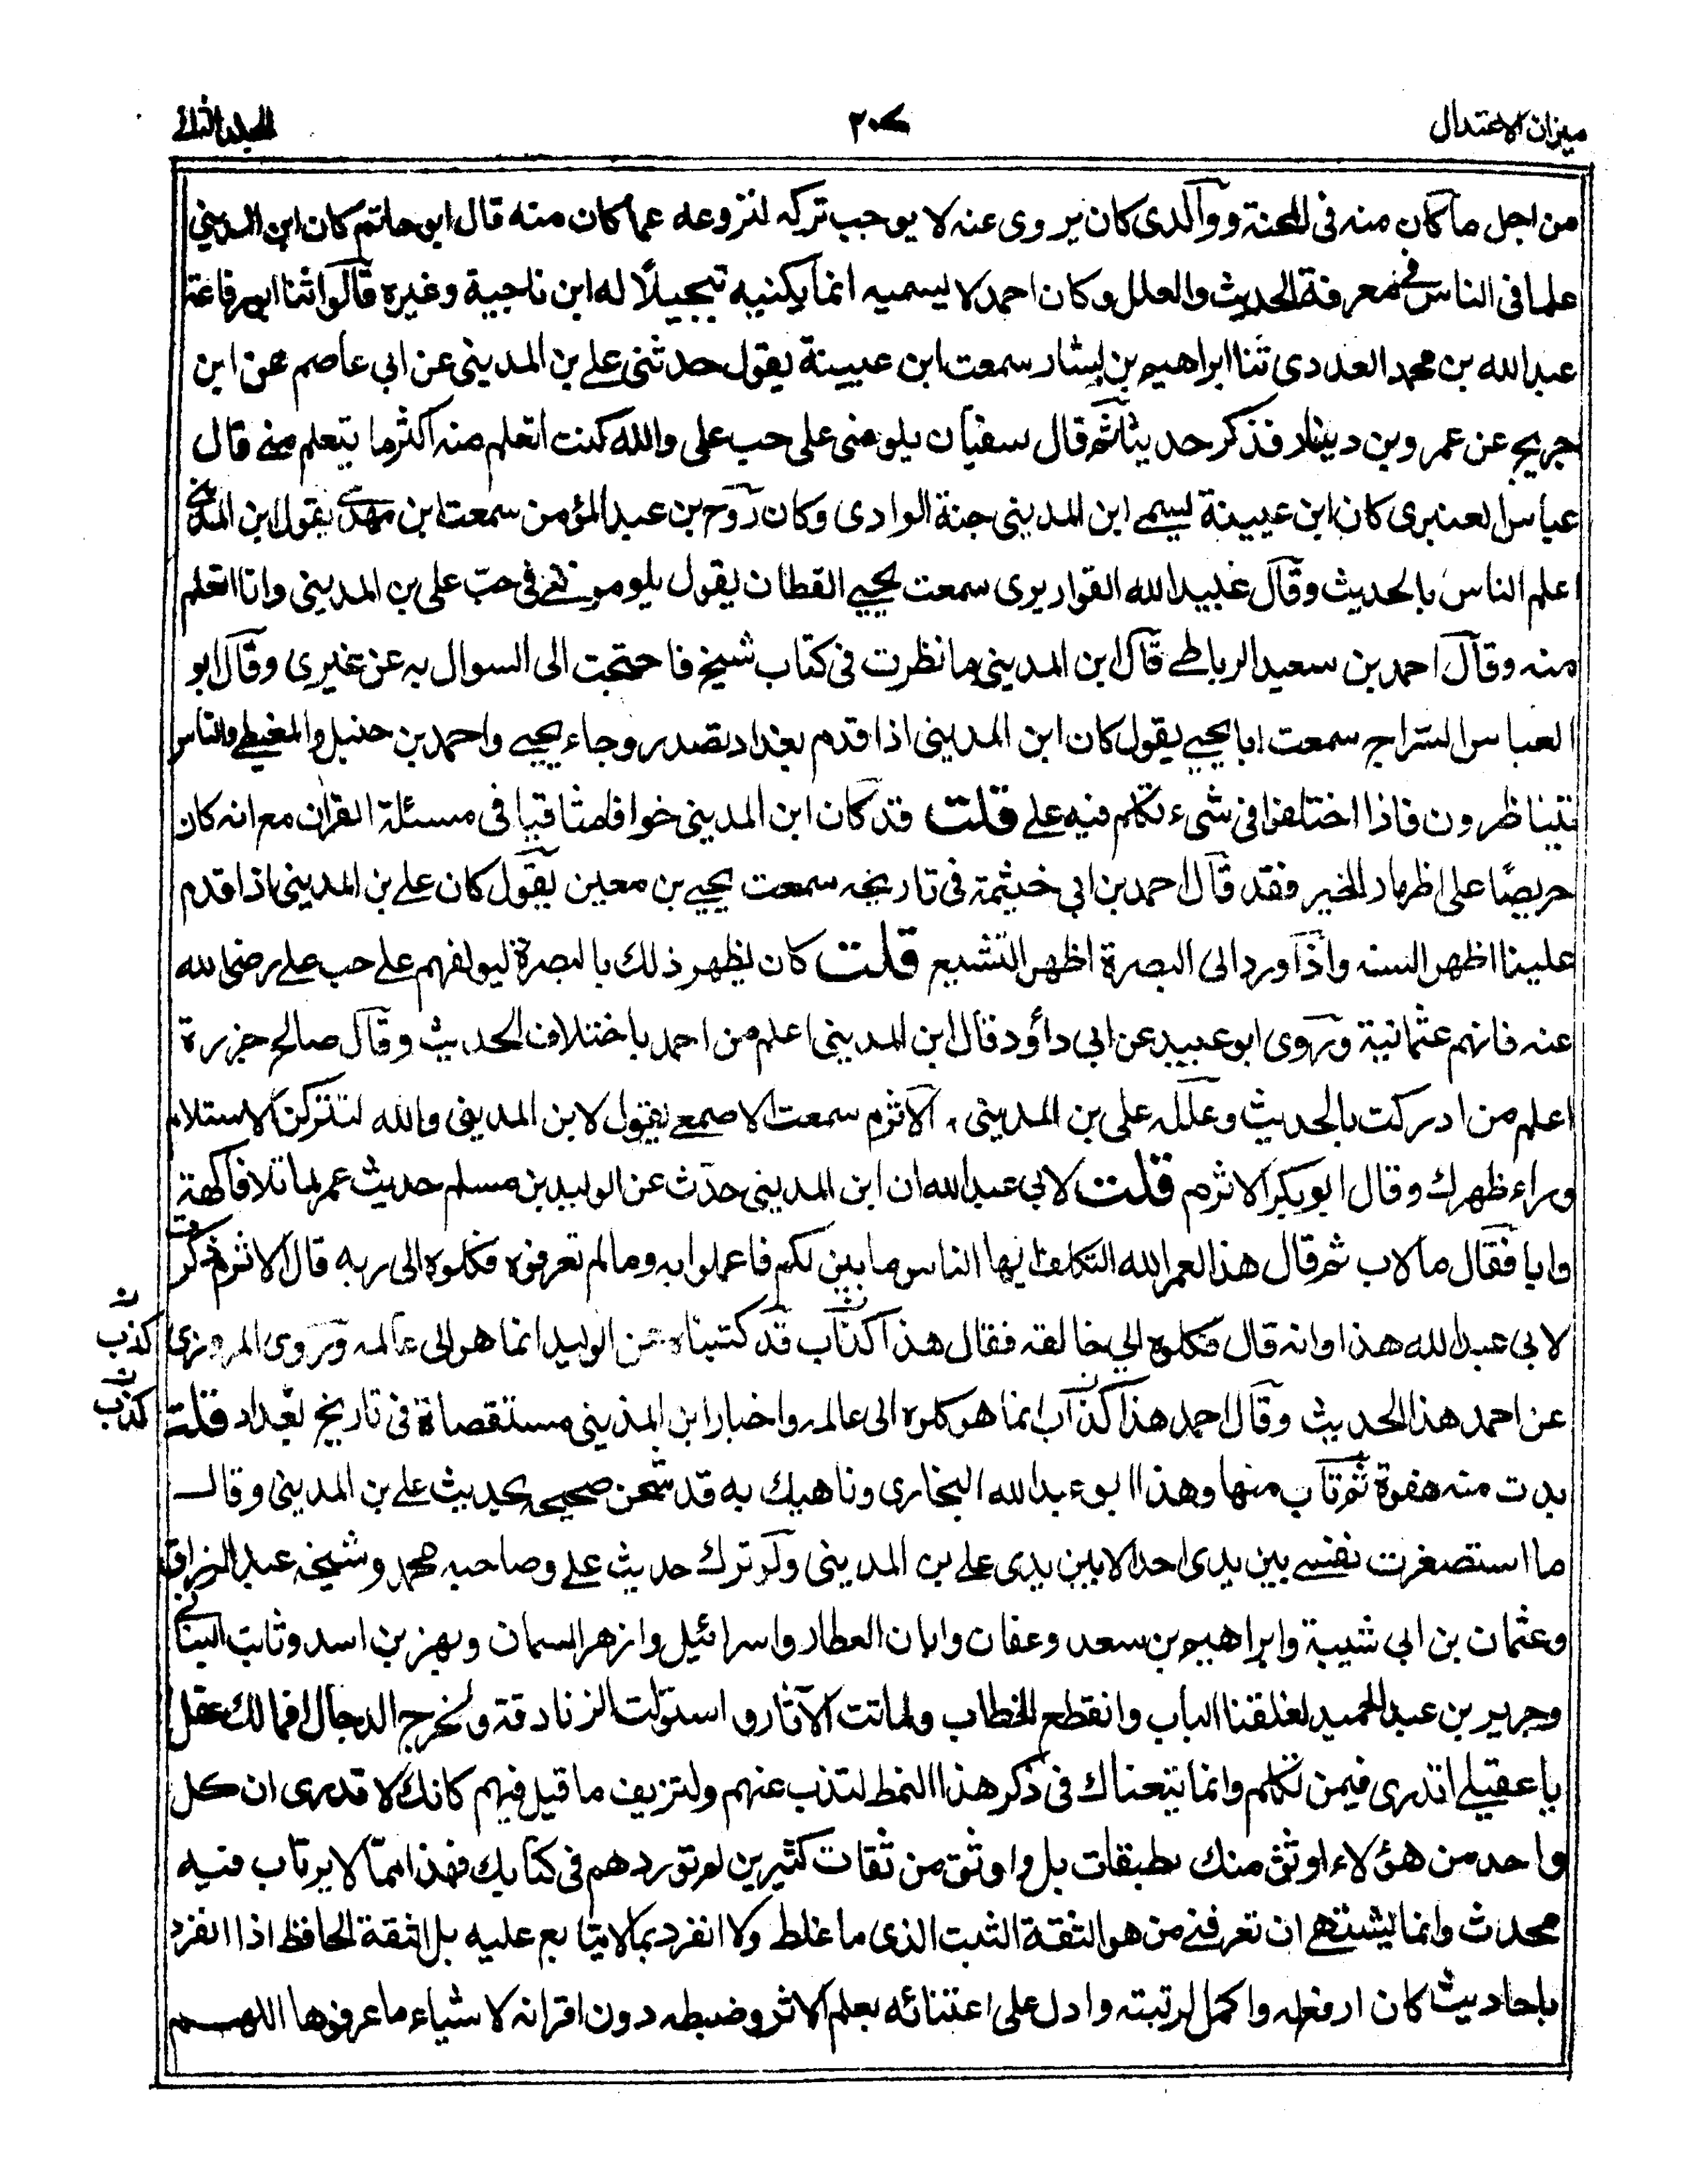 ميزان الاعتدال
٢٠٧
المجلد الثانى
من اجل ما كان منه فى المحنة ووالدى كان يروى عنه لا يوجب تركه لنزوعه عما كان منه قال ابو حاتم كان ابن المدينى
علما فى الناس فى معرفة الحديث والعلل وكان احمد لا يسميه انما يكنيه تبجيلًا له ابن ناجية وغيره قالوا ثنا ابو رفاعة
عبد الله بن محمد العددى ثنا ابراهيم بن بشار سمعت ابن عيينة يقول حدثنى على بن المدينى عن ابى عاصم عن ابن
جريج عن عمرو بن دينار فذكر حديثا ثم قال سفيان يلومنى على حب على والله كنت اتعلم منه اكثر ما يتعلم منى قال
عباس العنبرى كان ابن عيينة يسمى ابن المدينى جنة الوادى وكان روح بن عبد المؤمن سمعت ابن مهدى يقول ابن المدينى
اعلم الناس بالحديث وقال عبيد الله القواريرى سمعت يحيى القطان يقول يلوموننى فى حب على بن المدينى وانا اتعلم
منه وقال احمد بن سعيد الرباطى قال ابن المدينى ما نظرت فى كتاب شيخ فاحتجت الى السوال به عن غيرى وقال ابو
العباس السراج سمعت ابا يحيى يقول كان ابن المدينى اذا قدم بغداد تصدر وجاء يحيى واحمد بن حنبل والمغيطى والناس
يتناظرون فاذا اختلفوا فى شىء تكلم فيه على قلت قد كان ابن المدينى خوافا مثاقبا فى مسئلة القران مع انه كان
حريصًا على اظهار الخير فقد قال احمد بن ابى خيثمة فى تاريخه سمعت يحيى بن معين يقول كان على بن المدينى اذا قدم
علينا اظهر السنه واذا ورد الى البصرة اظهر التشيع قلت كان يظهر ذلك بالبصرة ليولفهم على حب على رضى الله
عنه فانهم عثمانية وروى ابو عبيد عن ابى داؤد قال ابن المدينى اعلم من احمد باختلاف الحديث وقال صالح جزرة
اعلم من ادركت بالحديث وعلله على بن المدينى ، الاثرم سمعت الاصمعى يقول لابن المدينى والله لتتركن الاسلام
وراء ظهرك وقال ابو بكر الاثرم قلت لابى عبد الله ان ابن المدينى حدث عن الوليد بن مسلم حديث عمر لما تلا فاكهة
وابا فقال ما الاب ثم قال هذا لعمر الله التكلف ايها الناس ما بين لكم فاعملوا به وما لم تعرفوه فكلوه الى ربه قال الاثرم ذكرت
لابى عبد الله هذا وانه قال فكلوه الى خالقه فقال هذا كذاب قد كتبناه عن الوليد انما هو الى عالمه وروى المروزى
كذب
عن احمد هذا الحديث وقال احمد هذا كذاب انما هو كلوه الى عالمه واخبار ابن المدينى مستقصاة فى تاريخ بغداد قلت
كذب
بدت منه هفوة ثم تاب منها وهذا ابو عبد الله البخارى وناهيك به قد شحن صحيحه بحديث على بن المدينى وقال
ما استصغرت نفسى بين يدى احد الا بين يدى على بن المدينى ولو ترك حديث على وصاحبه محمد وشيخه عبد الرزاق
وعثمان بن ابى شيبة وابراهيم بن سعد وعفان وابان العطار واسرائيل وازهر السمان وبهز بن اسد وثابت البنانى
وجرير بن عبد الحميد لغلقنا الباب وانقطع الخطاب ولماتت الآثار واستولت الزنادقة ولخرج الدجال افما لك عقل
يا عقيلى اتدرى فيمن تكلم وانما تبعناك فى ذكر هذا النمط لنذب عنهم ولنزيف ما قيل فيهم كانك لا تدرى ان كل
واحد من هؤلاء اوثق منك بطبقات بل واوثق من ثقات كثيرين لم توردهم فى كتابك فهذا مما لا يرتاب فيه
محدث وانما يشتهى ان تعرفنى من هو الثقة الثبت الذى ما غلط ولا انفرد بما لا يتابع عليه بل الثقة الحافظ اذا انفرد
باحاديث كان ارفع له واكمل لرتبته وادل على اعتنائه بعلم الاثر وضبطه دون اقرانه لاشياء ما عرفوها اللهم